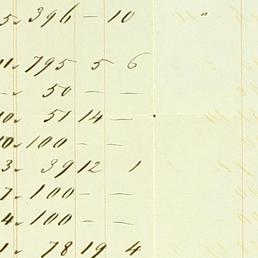 5 396 — 10 "
11 795 5 6
— 50 — —
10 51 14 —
10 100 — —
3 39 12 1
7 100 — —
4 100 — —
1 78 19 4